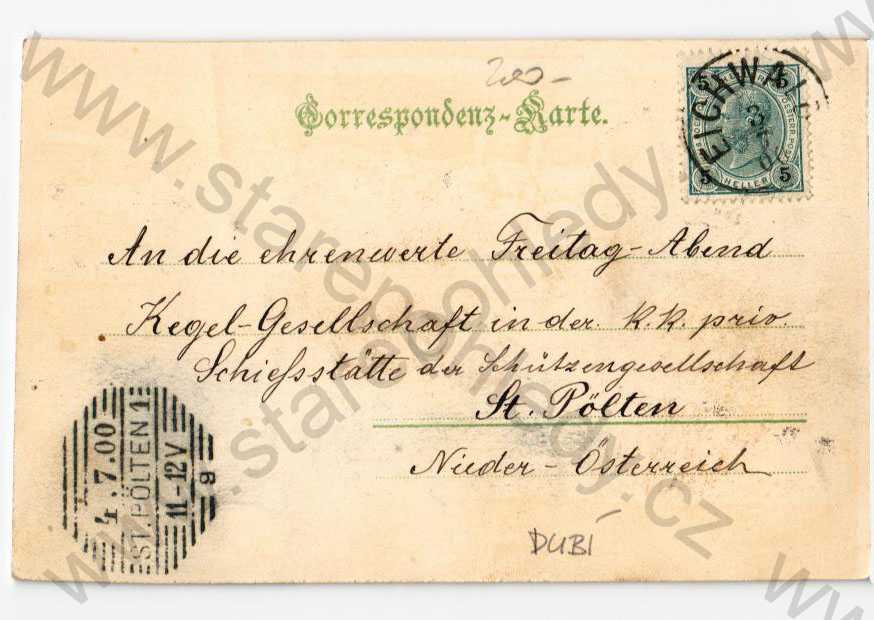 200-
Correspondenz-Karte.
EICHWALD
5 5
5 HELLER 5
An die ehrenwerte Freitag-Abend
Kegel-Gesellschaft in der k.k. priv.
Schießstätte der Schützengesellschaft
St. Pölten
Nieder-Österreich
4.7.00
ST. PÖLTEN 1
11-12V
9
DUBÍ
www.starepohledy.cz